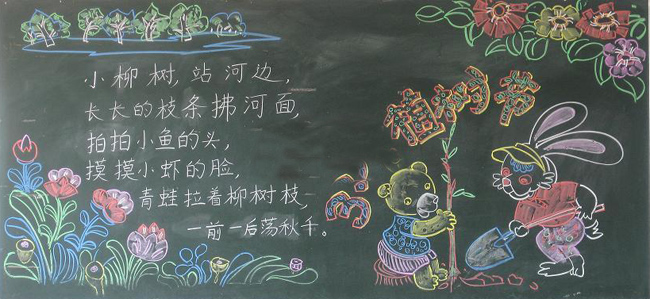 小柳树，站河边，
长长的枝条拂河面，
拍拍小鱼的头，
摸摸小虾的脸，
青蛙拉着柳树枝，
一前一后荡秋千。
植树节